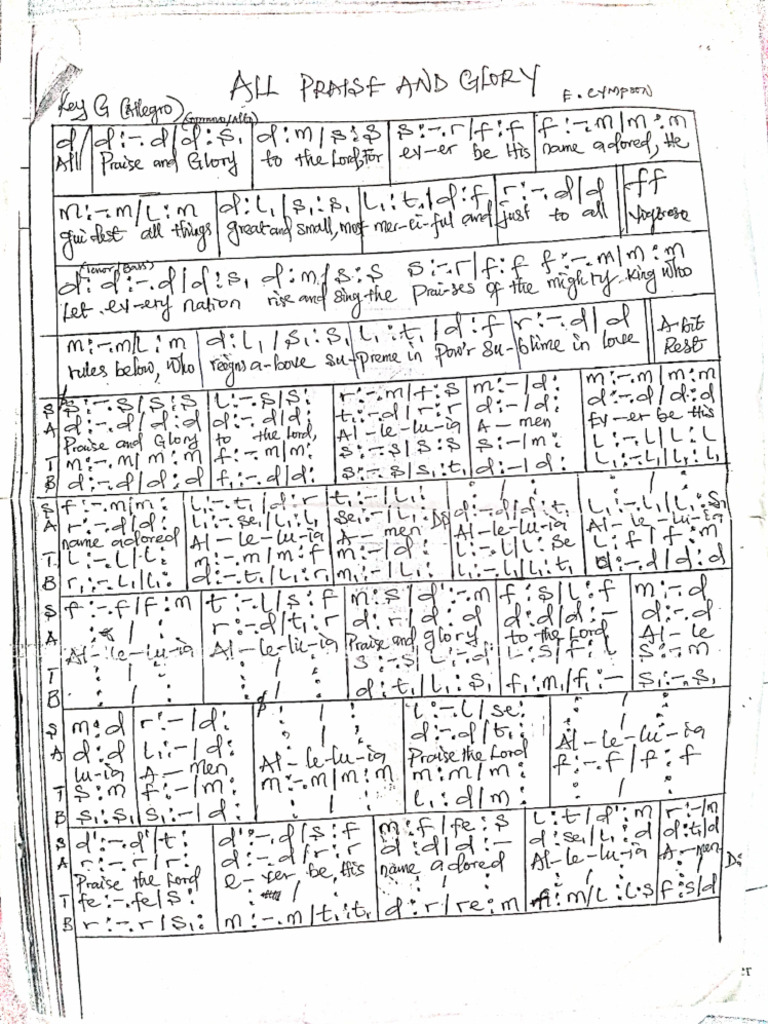 ALL PRAISE AND GLORY
Key G (Allegro) E. CYMPSON
(Soprano/Alto)
d / d :-. d / d : s, d : m / s : s s :-. r / f : f f :-. m / m : m
All Praise and Glory to the Lord, for ev-er be His name adored, He
m :-. m / l : m d : l, / s, : s, l, : t, / d : f r :-. d / d ff
guidest all things great and small, most mer-ci-ful and just to all
(Tenor/Bass)
d : d :-. d / d : s, d : m / s : s s :-. r / f : f f :-. m / m : m
Let ev-ery nation rise and sing the Praises of the mighty King who
m :-. m / l : m d : l, / s, : s, l, : t, / d : f r :-. d / d A bit
rules below, Who reigns a-bove su-preme in Pow'r su-blime in love Rest
S s :-. s / s : s l :-. s / s : r :-. m / f : s m :- / d : m :-. m / m : m
A d :-. d / d : d d :-. d / d : t, :-. d / r : r d :- / d : d :-. d / d : d
Praise and Glory to the Lord, Al-le-lu-ia A-men Ev-er be His
T m :-. m / m : m f :-. m / m : s :-. s / s : s s :- / m : l :-. l / l : l
B d :-. d / d : d f, :-. d / d : s :-. s / s, : t, d :- / d : l, :-. l, / l, : l,
S f :-. m / m : l, :-. t, / d : r t, :- / l, : d :-. d / d : t, l, :-. l, / l, : s,
A r :-. d / d : l, :-. se, / l, : l, se, :- / l, :
name adored Al-le-lu-ia A-men Ds Al-le-lu-ia Al-le-lu-ia
T l :-. l / l : m :-. m / m : f m :- / d : l :-. l / l : se l : f / f : m
B r, :-. l, / l, : d :-. t, / l, : r, m, :- / l, : l, :-. l, / l, : t, d :-. d / d : d
S f :-. f / f : m t :-. l / s : f m : s / d :-. m f : s / l : f m :-. d
A r :-. d / t, : r d : r / d : d d : d / d :- d :-. d
Al-le-lu-ia Al-le-lu-ia Praise and glory to the Lord Al-le
T s :-. s / l :-. d l : s / f : l s :-. m
B d : t, / l, : s, f, : m, / f, :- s, :-. s,
S m : d r :- / d : l :-. l / se :
A d : d l, :- / d : d :-. d / t, :
lu-ia A-men Al-le-lu-ia Praise the Lord Al-le-lu-ia
T s : m f :- / m : m :-. m / m : m m : m / m : f :-. f / f : f
B s, : s, s, :- / d : l, : d / m :
S d' :-. d' / t : d' :-. d / s : f m : f / fe : s l : t / d' : m r :- / m
A r :-. r / r : d :-. d / r : r d : d / d :- d : se, / l, : d d : t, / d
Praise the Lord e-ver be, His name adored Al-le-lu-ia A-men Ds
T fe :-. fe / s :
B r :-. r / s, : m :-. m / t, : t, d : r / re : m m / l : l s f : s / d